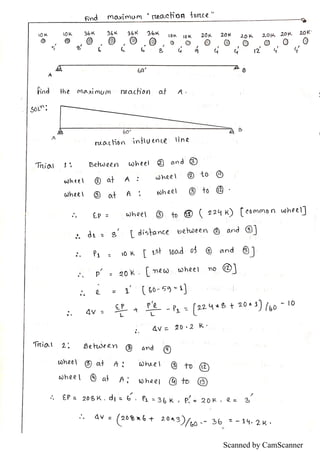 Find maximum "reaction force"
10K 10K 36K 36K 36K 36K 10K 10K 20K 20K 20K 20K 20K 20K
5' 8' 6' 6' 6' 8' 5' 9' 6' 6' 12' 5' 5'
60'
A B
Find the maximum reaction at A.
Solⁿ:
60'
A B
reaction influence line
Trial 1: Between wheel ② and ③
wheel ② at A : wheel ② to
wheel ③ at A : wheel ③ to ⑫.
∴ ΣP = wheel ③ to ( 224 K) [common wheel]
∴ d1 = 8' [ distance between ② and ③]
∴ P1 = 10 K [ 1st load of ② and ③]
∴ P' = 20 K [ new wheel no ⑫]
∴ e = 1' [60-59=1]
∴ ΔV = ΣP/L + P'e/L - P1 = (224*8 + 20*1)/60 - 10
∴ ΔV = 20.2 K.
Trial 2: Between ③ and ④
wheel ③ at A : wheel ③ to ⑫
wheel ④ at A; wheel ④ to ⑬
∴ ΣP = 208 K. d1 = 6'. P1 = 36 K. P' = 20 K. e = 3'
∴ ΔV = (208*6 + 20*3)/60 - 36 = -14.2 K.
Scanned by CamScanner